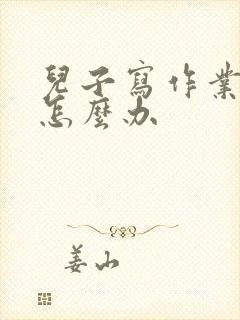 兒子寫作業
怎麼办
姜山